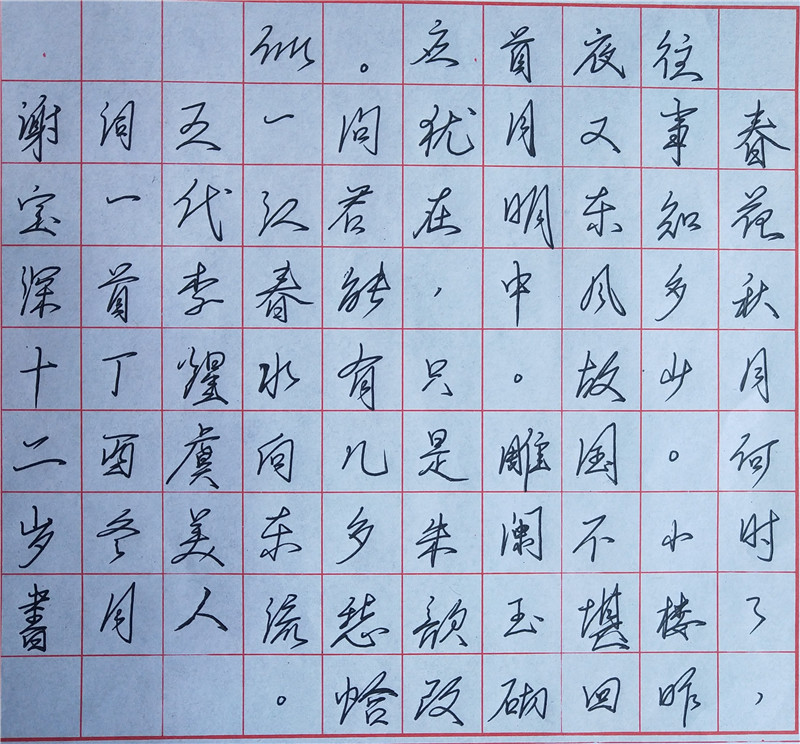 春花秋月何时了，
往事知多少。小楼昨
夜又东风故国不堪回
首月明中。雕阑玉砌
应犹在，只是朱颜改
。问君能有几多愁恰
似一江春水向东流。
五代李煜虞美人
词一首丁酉冬月
谢宝深十二岁书